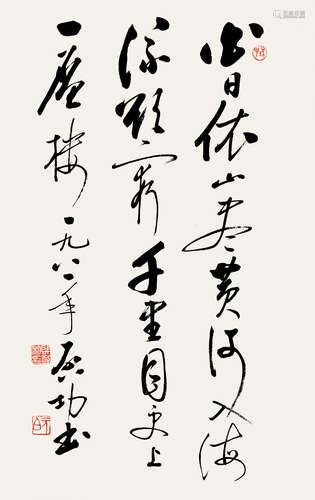 白日依山盡黄河入海
流欲窮千里目更上
一層樓 一九八二年 启功书